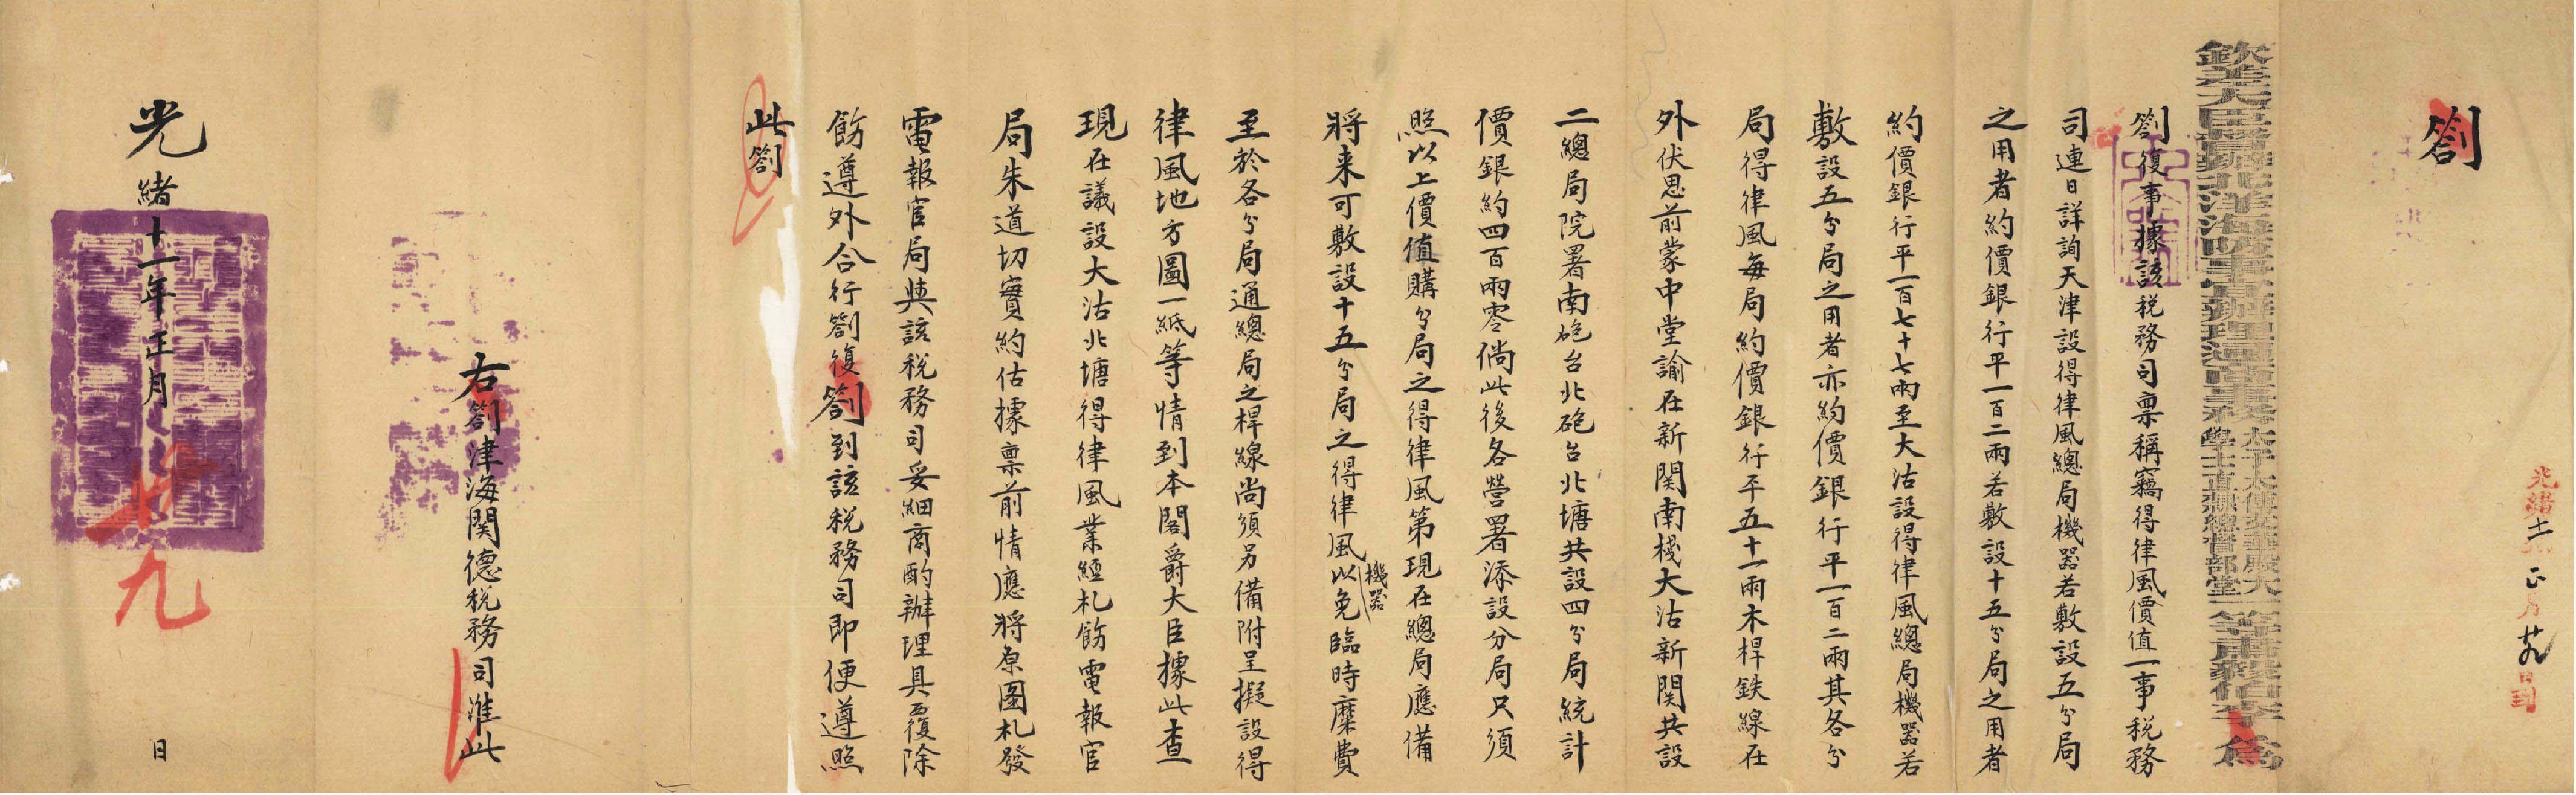 劄
光緒十一正月廿九日到
欽差大臣督辦北洋海防事宜辦理通商事務太子太傅文華殿大學士直隸總督部堂一等肅毅伯李 為
劄復事據該税務司禀稱竊得律風價值一事税務
司連日詳詢天津設得律風總局機器若敷設五分局
之用者約價銀行平一百二兩若敷設十五分局之用者
約價銀行平一百七十七兩至大沽設得律風總局機器若
敷設五分局之用者亦約價銀行平一百二兩其各分
局得律風每局約價銀行平五十一兩木桿鉄線在
外伏思前蒙中堂諭在新関南棧大沽新関共設
二總局院署南砲台北砲台北塘共設四分局統計
價銀約四百兩零倘此後各營署添設分局只須
照以上價值購分局之得律風第現在總局應備
將来可敷設十五分局之得律風機器以免臨時糜費
至於各分局通總局之桿線尚須另備附呈擬設得
律風地方圖一紙等情到本閣爵大臣據此查
現在議設大沽北塘得律風業經札飭電報官
局朱道切實約估據禀前情應將原圖札發
電報官局與該税務司妥細商酌辦理具覆除
飭遵外合行劄復劄到該税務司即便遵照
此劄
右劄津海関德税務司准此
光緒十一年正月廿九日